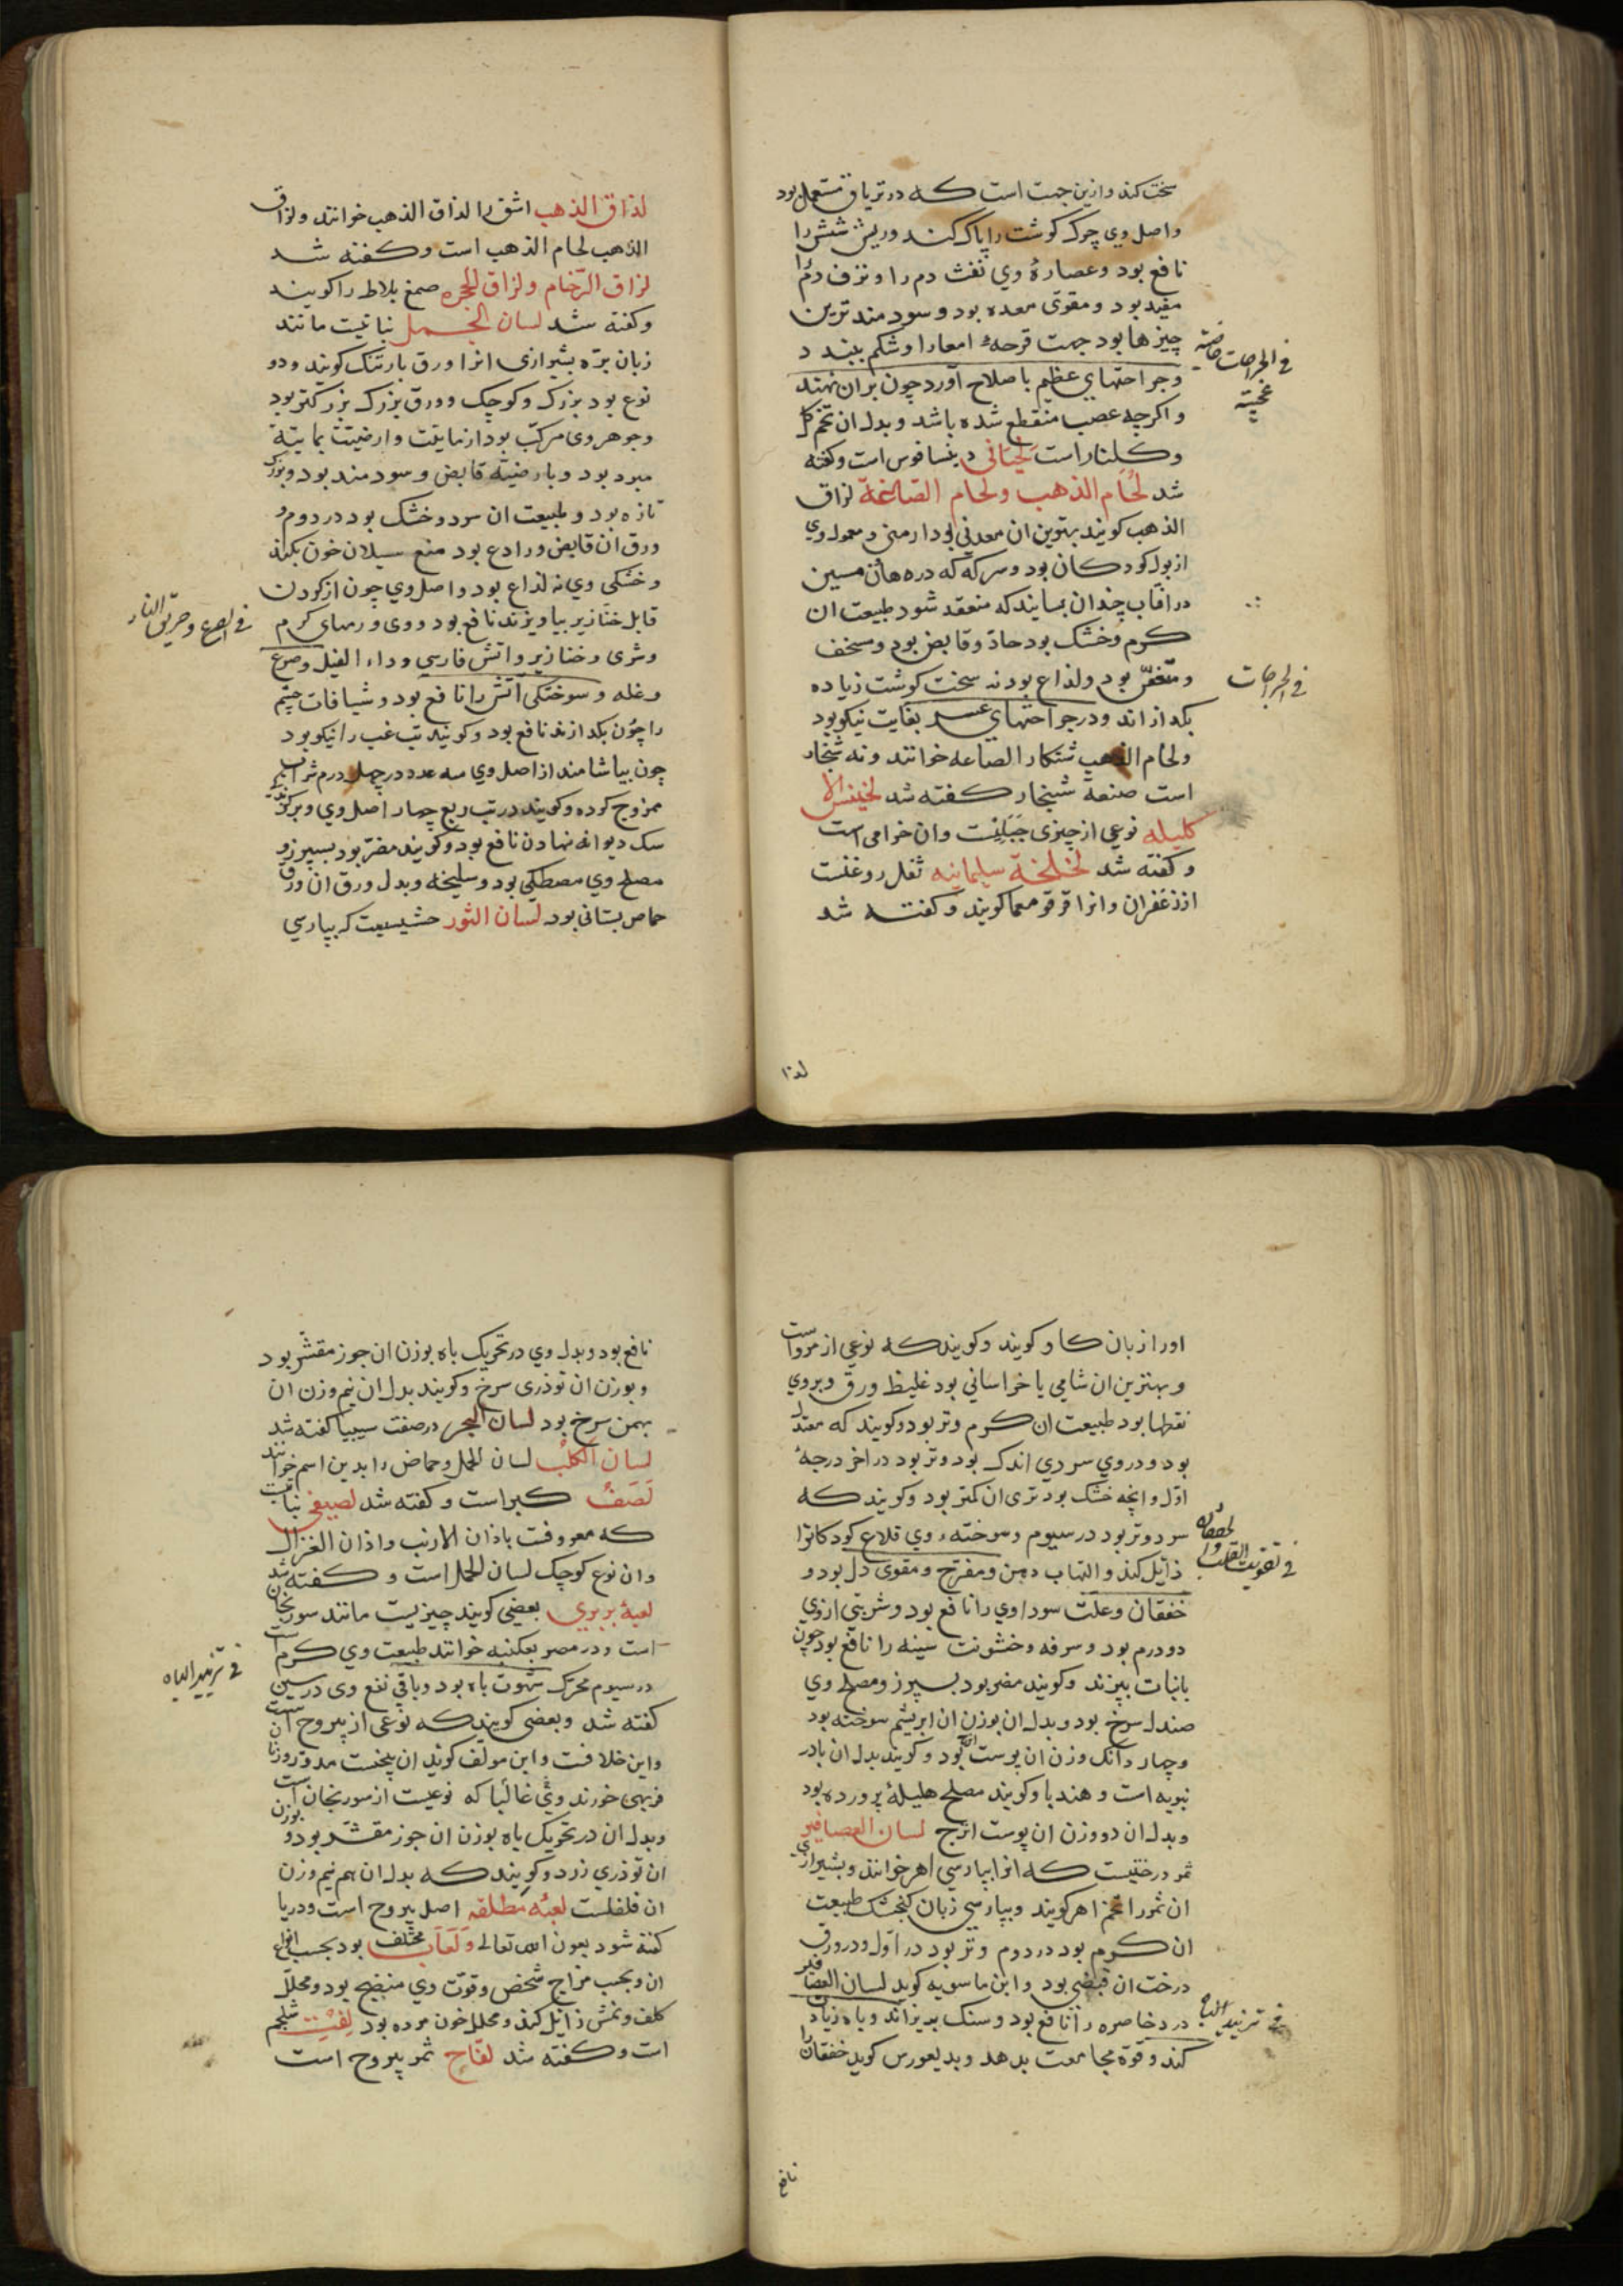 سخت کند و ازین جهت است که در تریاق مستعمل بود
و اصل وی چرک کوشت را پاک کند و ریش شش را
نافع بود و عصارهٔ وی نفث دم را و نزف دم را
مفید بود و مقوی معده بود و سودمندترین
چیزها بود جهت قرحهٔ امعا را و شکم ببندد
و جراحتهای عظیم باصلاح آورد چون بران نهند
و اکرچه عصب منقطع شده باشد و بدل ان تخم کل
و کلنار است لحیانی دینساقوس است و کفته
شد لحام الذهب و لحام الصاغة لزاق
الذهب کویند بهترین ان معدنی بود ارمنی و معمول وی
از بول کودکان بود و سرکه که در هاون مسین
در افتاب چندان بسایند که منعقد شود طبیعت ان
کرم و خشک بود حاد و قابض بود و مسخن
و متعفن بود و لذاع بود نه سخت کوشت زیاده
بکدازاند و در جراحتهای عسر بغایت نیکو بود
و لحام الذهب شنکار الصاعه خوانند و نه شنجار
است صنعة شنجار کفته شد لخینس الا
کلیله نوعی از چیزی جبلیست و ان خرامی است
و کفته شد لخلخة سلیمانیه ثفل روغنست
از زعفران و انرا قرقومعما کویند و کفته شد
فی الجراحات خاصیته
عجیبة
فی الجراحات
لذا
لذاق الذهب اشق را لذاق الذهب خوانند و لزاق
الذهب لحام الذهب است و کفته شد
لزاق الرخام و لزاق الحجره صمغ بلاط را کویند
و کفته شد لسان الحمل نباتیست مانند
زبان بره بشیرازی انرا ورق بارتنک کویند و دو
نوع بود بزرک و کوچک و ورق بزرک بزرکتر بود
و جوهر وی مرکب بود از مایت و ارضیت بمایتة
مبرد بود و بارضیة قابض و سودمند بود و بزرک
تازه بود و طبیعت ان سرد و خشک بود در دوم و
ورق ان قابض و رادع بود منع سیلان خون بکند
و خشکی وی نه لذاع بود و اصل وی چون از کردن
قابل خنازیر بیاویزند نافع بود و وی ورمهای کرم
و شری و خنازیر و اتش فارسی و داء الفیل و صرع
و غله و سوختکی اتش را نافع بود و شیافات چشم
را چون بکدازند نافع بود و کویند تب غب را نیکو بود
چون بیاشامند از اصل وی سه عدد در چهل درم شراب
ممزوج کرده و کویند در تب ربع چهار اصل وی و بر کزند
سک دیوانه نهادن نافع بود و کویند مضر بود بسپرز و
مصلح وی مصطکی بود و سلیخه و بدل ورق ان ورق
حماض بستانی بود لسان الثور حشیست که بپارسی
فی الصرع و حرق النار
او را زبان کاو کویند و کویند که نوعی از مرو است
و بهترین ان شامی یا خراسانی بود غلیظ ورق و بروی
نقطها بود طبیعت ان کرم و تر بود و کویند که معتدل
بود و در وی سردی اندک بود و تر بود در اخر درجهٔ
اول و انچه خشک بود تری ان کمتر بود و کویند که
سرد و تر بود در سیوم و سوخته وی قلاع کودکانرا
ذایل کند و التهاب دهن و مفرح و مقوی دل بود و
خفقان و علت سوداوی را نافع بود و شربتی ازوی
دو درم بود و سرفه و خشونت سینه را نافع بود چون
با نبات بپزند و کویند مضر بود بسپرز و مصلح وی
صندل سرخ بود و بدل ان بوزن ان ابریشم سوخته بود
و چهار دانک وزن ان پوست اترج بود و کویند بدل ان بادر
نبویه است و هندبا و کویند مصلح هلیلهٔ پرورده بود
و بدل ان دو وزن ان پوست اترج لسان العصافیر
ثمر درختیست که انرا بپارسی اهر خوانند و بشیرازی
ان ثمر را تخم اهر کویند و بپارسی زبان کنجشک طبیعت
ان کرم بود در دوم و تر بود در اول و در ورق
درخت ان قبضی بود و ابن ماسویه کوید لسان العصافیر
درد خاصره را نافع بود و سنک بریزاند و باه زیاد
کند و قوة مجامعت بدهد و بدیغورس کوید خفقان را
فی تقویت القلب
فی تزیید الباه
نافع
نافع بود و بدل وی در تحریک باه بوزن ان جوز مقشر بود
و بوزن ان توذری سرخ و کویند بدل ان نیم وزن ان
بهمن سرخ بود لسان البحر در صفت سیبیا کفته شد
لسان الکلب لسان الحمل و حماض را بدین اسم خوانند
لصف کبر است و کفته شد لصیفی نباتیست
که معروفت باذان الارنب و اذان الغزال
و ان نوع کوچک لسان الحمل است و کفته شد
لعبهٔ بربری بعضی کویند چیزیست مانند سورنجان
است و در مصر بعکنبه خوانند طبیعت وی کرم است
در سیوم محرک شهوت باه بود و باقی نفع وی در سین
کفته شد و بعضی کویند که نوعی از یبروح ان
و این خلافست و ابن مولف کوید ان بیخست
فربهی خورند و غالبا که نوعیست از سورنجان است
و بدل ان در تحریک باه بوزن ان جوز مقشر بود و بوزن
ان توذری زرد و کویند که بدل ان هم نیم وزن
ان فلفلست لعبهٔ مطلقه اصل یبروح است و در یا
کفته شود بعون الله تعالی و لعاب مختلف بود بحسب انواع
ان و بحسب مزاج شخص و قوت وی منضج بود و محلل
کلف و نمش ذایل کند و محلل خون مرده بود لفت شلجم
است و کفته شد لفاح ثمر یبروح است
فی تزیید الباه